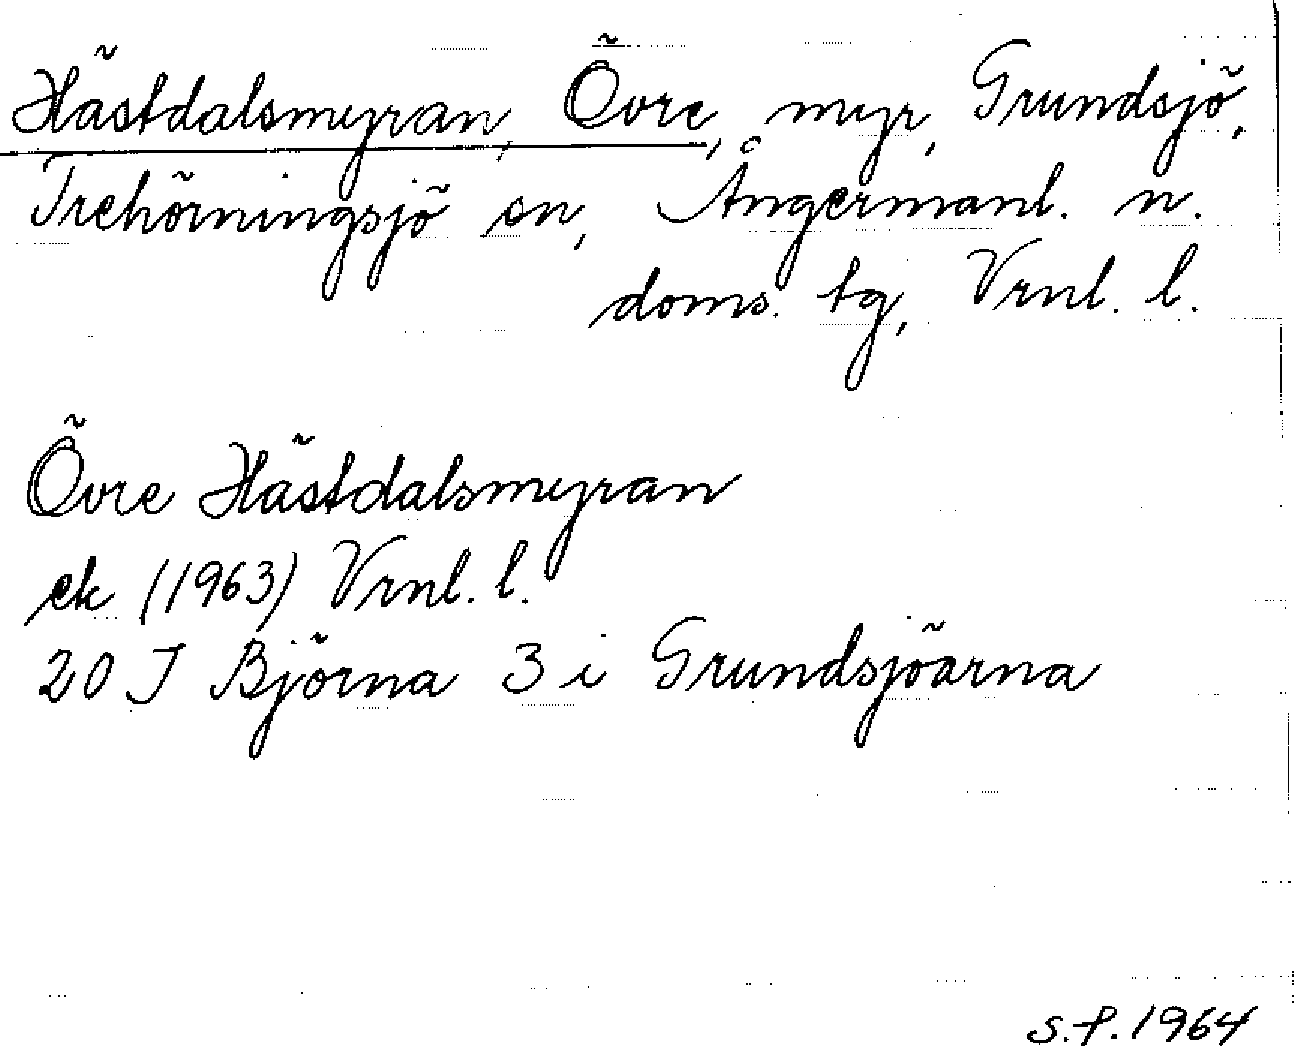 Hästdalsmyran, Övre, myr, Grundsjö,
Trehörningsjö sn, Ångermanl. n.
doms. tg, Vrnl. l.
Övre Hästdalsmyran
ek (1963) Vrnl. l.
20 J Björna 3 i Grundsjöarna
S.F. 1964